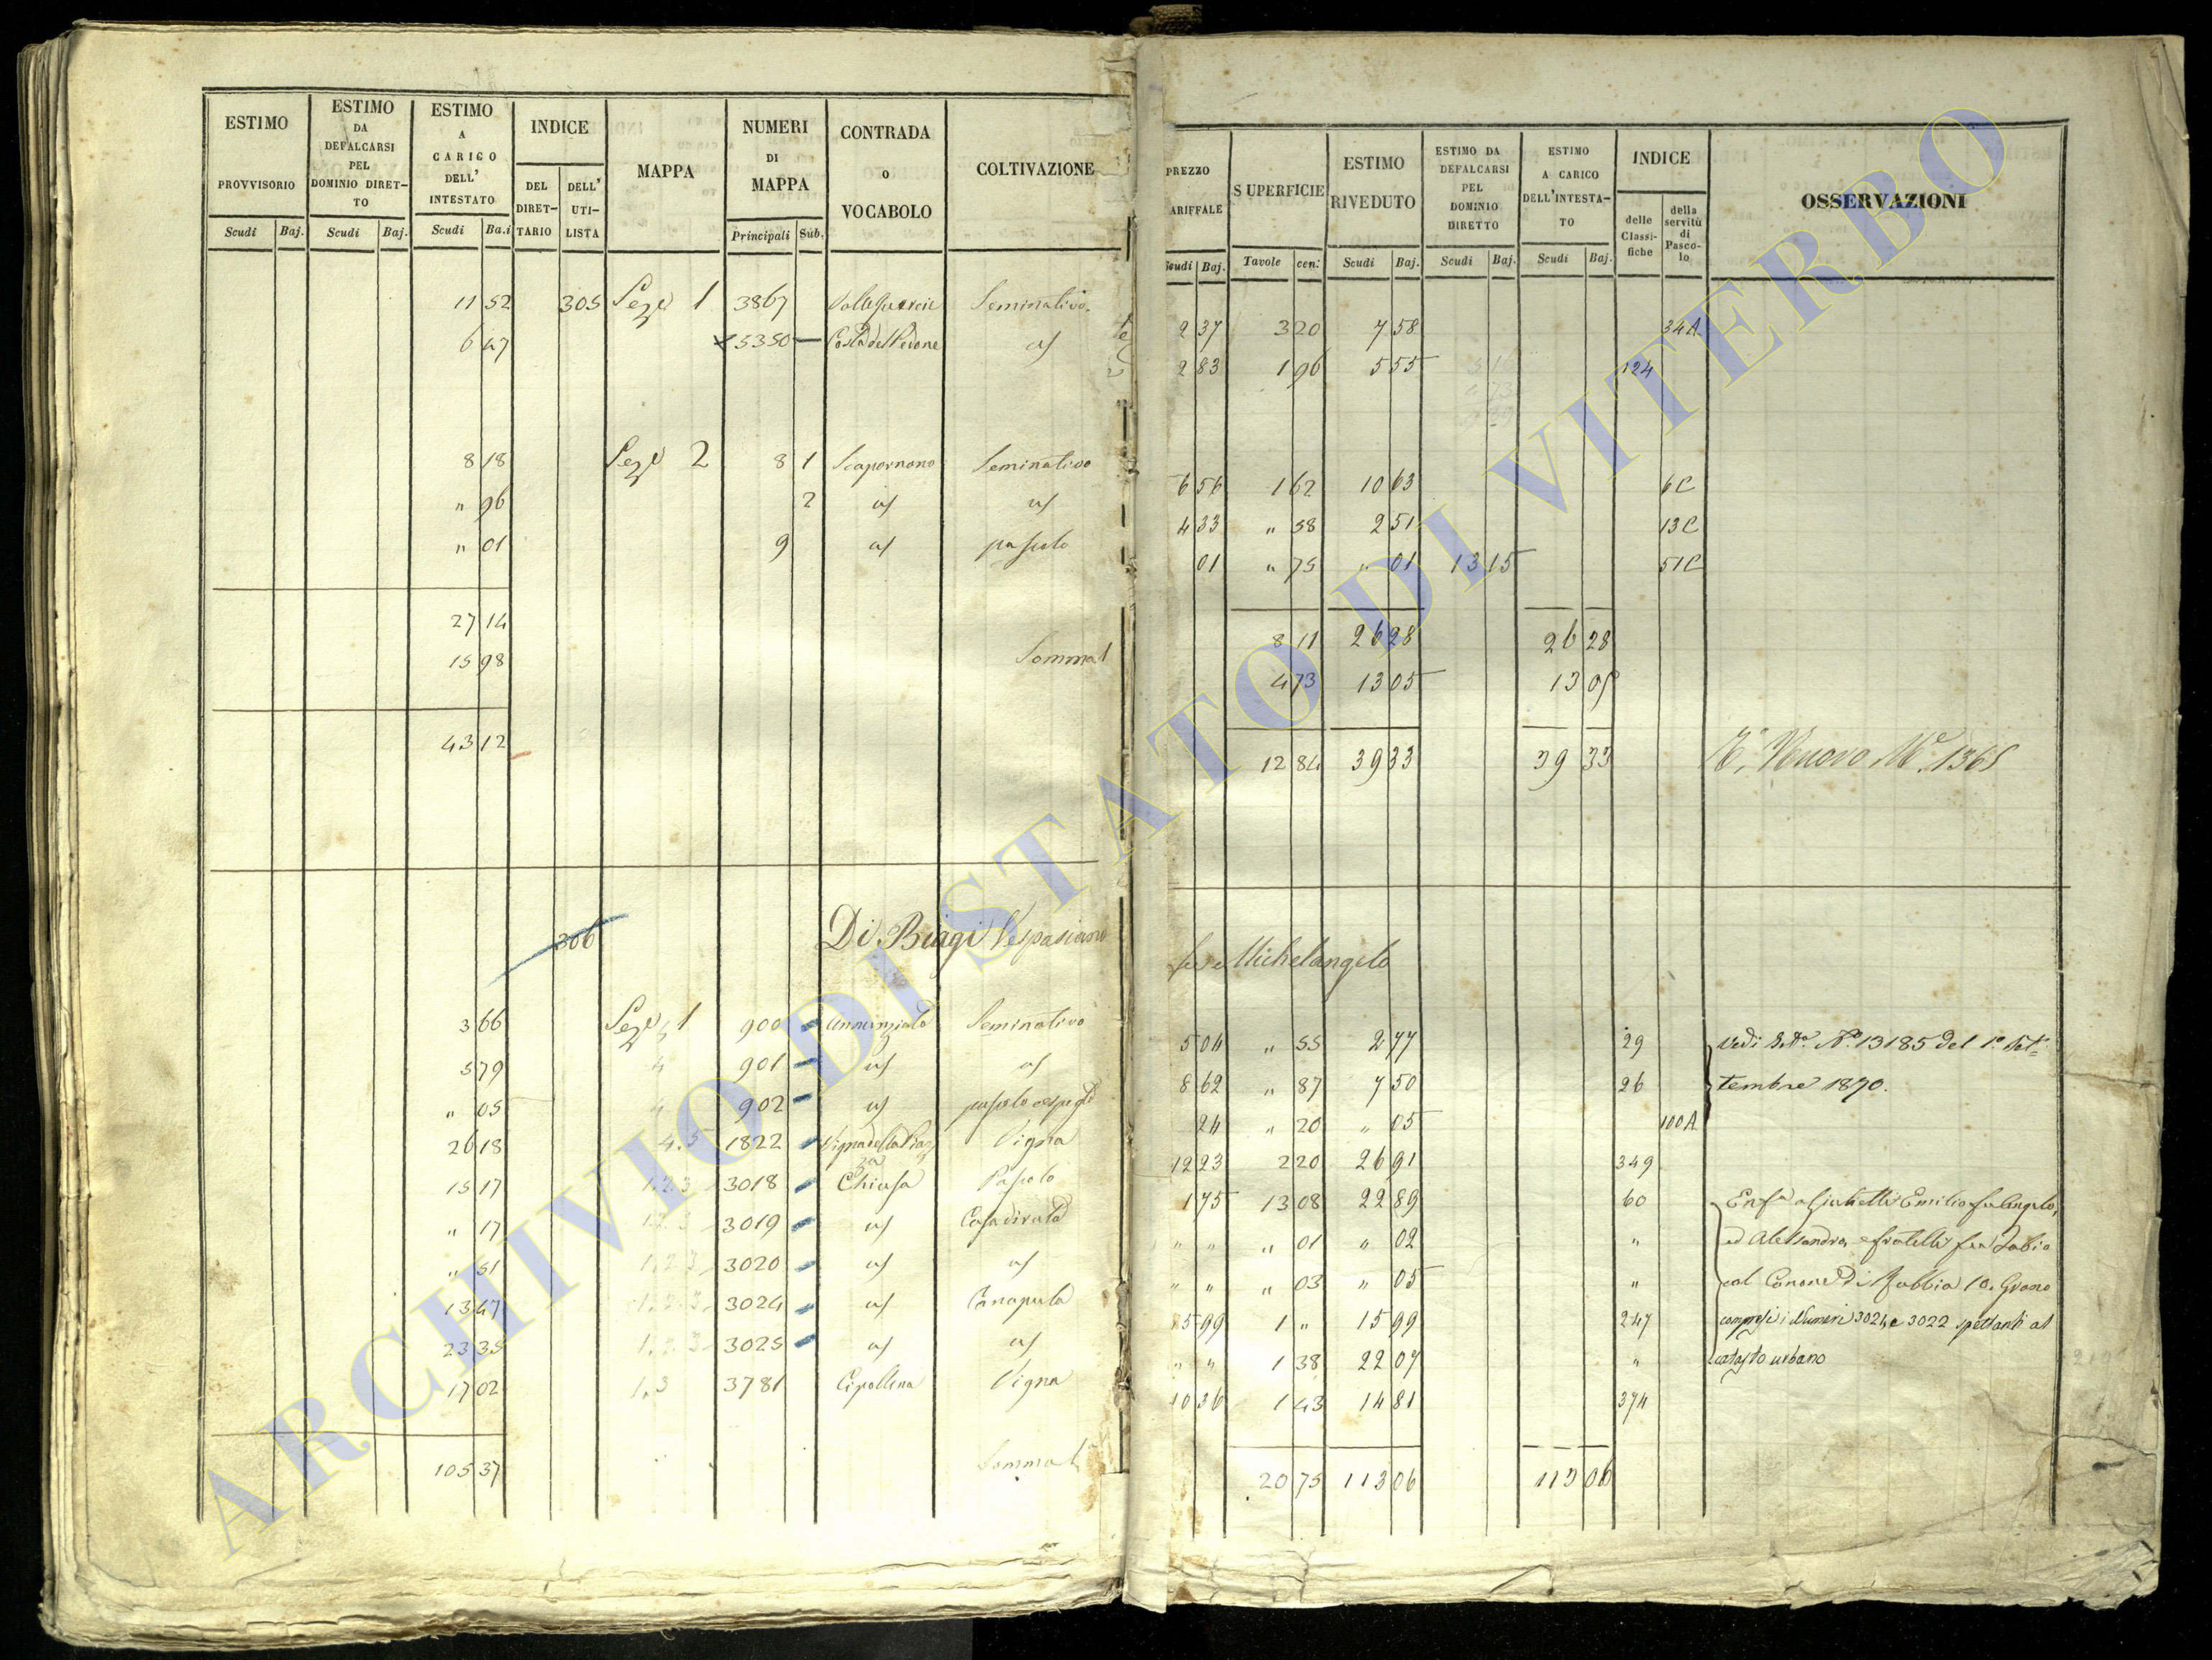 ESTIMO PROVVISORIO | ESTIMO DA DEFALCARSI PEL DOMINIO DIRETTO | ESTIMO A CARICO DELL' INTESTATO | INDICE | MAPPA | NUMERI DI MAPPA | CONTRADA O VOCABOLO | COLTIVAZIONE
DEL DIRETTARIO | DELL' UTILISTA
Scudi | Baj. | Scudi | Baj. | Scudi | Baj. | Principali | Sub.
11 52 | 305 | Seze 1 | 3867 | Seminativo
6 47 | 5350 | Costa del Pedone | id
8 18 | Seze 2 | 8 | 1 | Scapornono | Seminativo
" 96 | 2 | id | id
" 01 | 9 | id | pascolo
27 14
15 98 | Somma
43 12
306 | Di Biagi Vespasiano
3 66 | Seze 1 | 900 | Annunziata | Seminativo
5 79 | 4 | 901 | id | id
" 05 | 4 | 902 | id | pascolo
26 18 | 4.5 | 1822 | Vigna della Piazza | Vigna
15 17 | 1.2.3 | 3018 | Chiusa | Pascolo
" 17 | 1.2.3 | 3019 | id
" 51 | 1.2.3 | 3020 | id | id
13 47 | 1.2.3 | 3024 | id | Canapula
23 35 | 1.2.3 | 3025 | id | id
17 02 | 1.3 | 3781 | Cipollina | Vigna
105 37 | Somma
PREZZO ARIFFALE | SUPERFICIE | ESTIMO RIVEDUTO | ESTIMO DA DEFALCARSI PEL DOMINIO DIRETTO | ESTIMO A CARICO DELL'INTESTATO | INDICE | OSSERVAZIONI
delle Classifiche | della servitù di Pascolo
Scudi | Baj. | Tavole | cen. | Scudi | Baj. | Scudi | Baj. | Scudi | Baj.
2 37 | 3 20 | 7 58 | 34A
2 83 | 1 96 | 5 55 | 124
6 56 | 1 62 | 10 63 | 6C
4 33 | " 58 | 2 51 | 13C
01 | " 75 | " 01 | 13 15 | 51C
8 11 | 26 28 | 26 28
4 73 | 13 05 | 13 05
12 84 | 39 33 | 39 33 | 1365
fu Michelangelo
5 04 | " 55 | 2 77 | 29 | Vedi N.° 13185 del 1° Set=
8 62 | " 87 | 7 50 | 26 | tembre 1870.
24 | " 20 | " 05 | 100A
12 23 | 2 20 | 26 91 | 349
1 75 | 13 08 | 22 89 | 60 | Enfa a Emilio fu Angelo,
" " | " 01 | " 02 | " | ed Alessandro, e fratelli fu Fabio
" " | " 03 | " 05 | " | col Canone di Rubbia 10. Grano
15 99 | 1 " | 15 99 | 247 | compresi i Numeri 3021, e 3022 spettanti al
" " | 1 38 | 22 07 | " | catasto urbano
10 36 | 1 43 | 14 81 | 374
20 75 | 113 06 | 113 06
ARCHIVIO DI STATO DI VITERBO